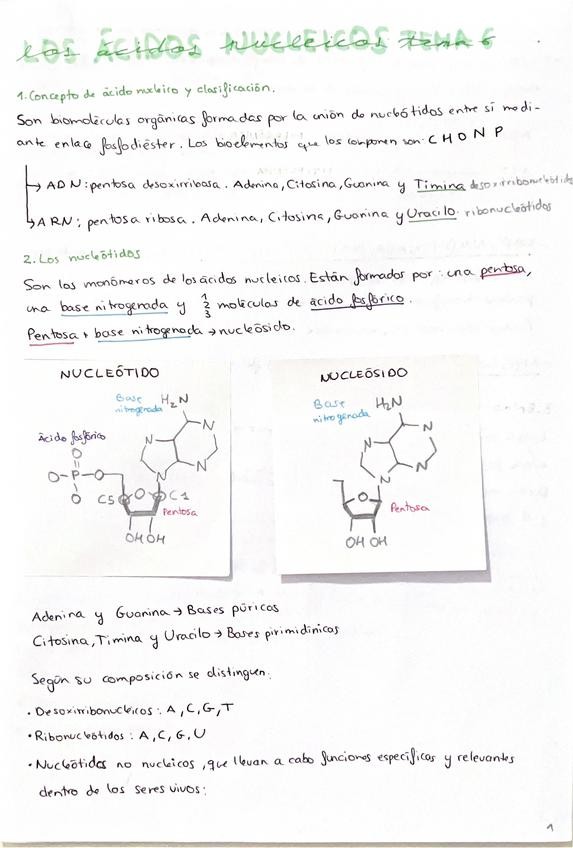 LOS ÁCIDOS NUCLEICOS TEMA 6
1. Concepto de ácido nucleico y clasificación.
Son biomoléculas orgánicas formadas por la unión de nucleótidos entre sí medi-
ante enlace fosfodiéster. Los bioelementos que los componen son: C H O N P
→ ADN: pentosa desoxirribosa. Adenina, Citosina, Guanina y Timina desoxirribonucleótidos
→ ARN: pentosa ribosa. Adenina, Citosina, Guanina y Uracilo. ribonucleótidos
2. Los nucleótidos
Son los monómeros de los ácidos nucleicos. Están formados por: una pentosa,
una base nitrogenada y 1 2 3 moléculas de ácido fosfórico.
Pentosa + base nitrogenada → nucleósido.
NUCLEÓTIDO
Base nitrogenada
H₂N
N
N
N
N
Ácido fosfórico
O
O-P-O
O
C5
O
C1
Pentosa
OH OH
NUCLEÓSIDO
Base nitrogenada
H₂N
N
N
N
N
O
Pentosa
OH OH
Adenina y Guanina → Bases púricas
Citosina, Timina y Uracilo → Bases pirimidínicas
Según su composición se distinguen:
• Desoxirribonucleicos: A, C, G, T
• Ribonucleótidos: A, C, G, U
• Nucleótidos no nucleicos, que llevan a cabo funciones específicas y relevantes
dentro de los seres vivos:
1